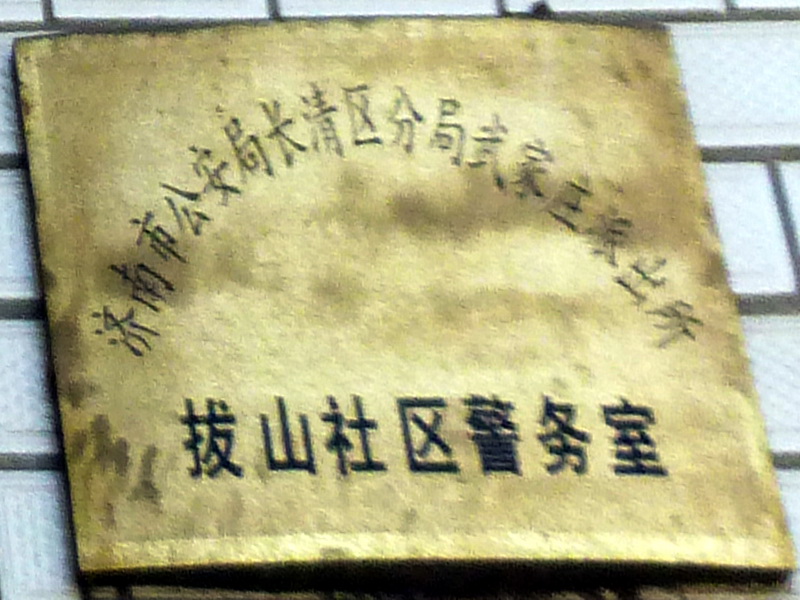 济南市公安局长清区分局武家庄派出所
拔山社区警务室